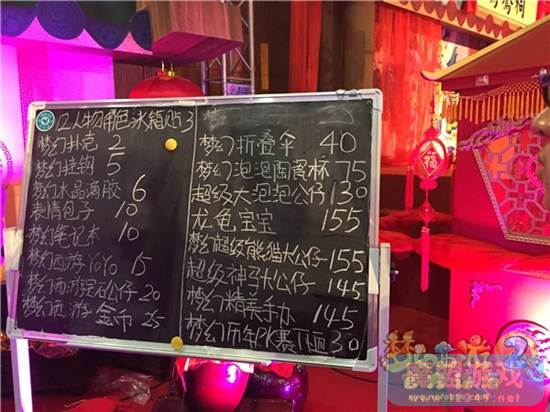 12人物角色冰箱贴3
梦幻扑克 2
梦幻挂钩 5
梦幻水晶滴胶 6
表情包子 10
梦幻笔记本 10
梦幻西游YOYO 15
梦幻西游宝石公仔 20
梦幻西游金币 25
梦幻折叠伞 40
梦幻泡泡陶瓷杯 75
超级大泡泡公仔 130
龙龟宝宝 155
梦幻超级熊猫大公仔 155
超级神马大公仔 145
梦幻精美手办 145
梦幻历年PK赛T恤 30
福
梦幻西游2